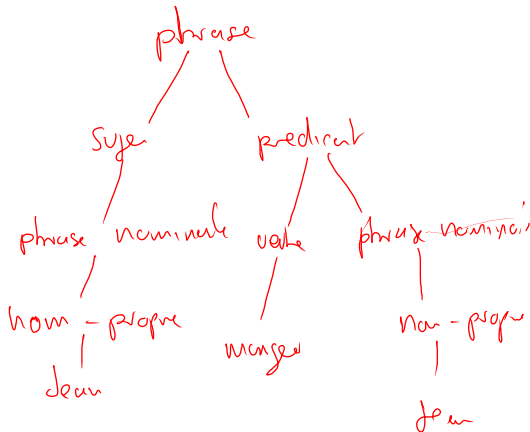 phrase
sujet predicat
phrase nominale verbe phrase-nominal
nom-propre manger nom-propre
Jean Jean